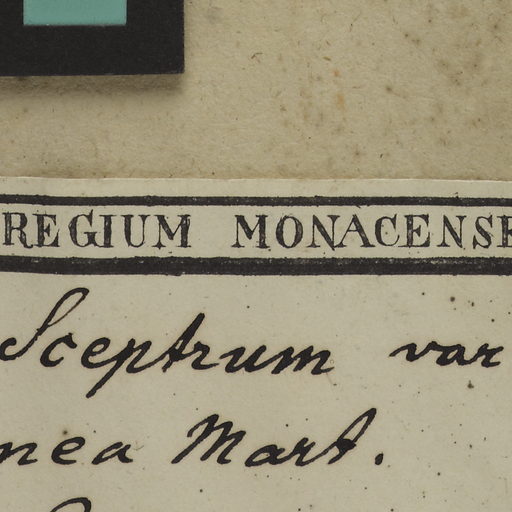 REGIUM MONACENSE
Sceptrum var
nea Mart.